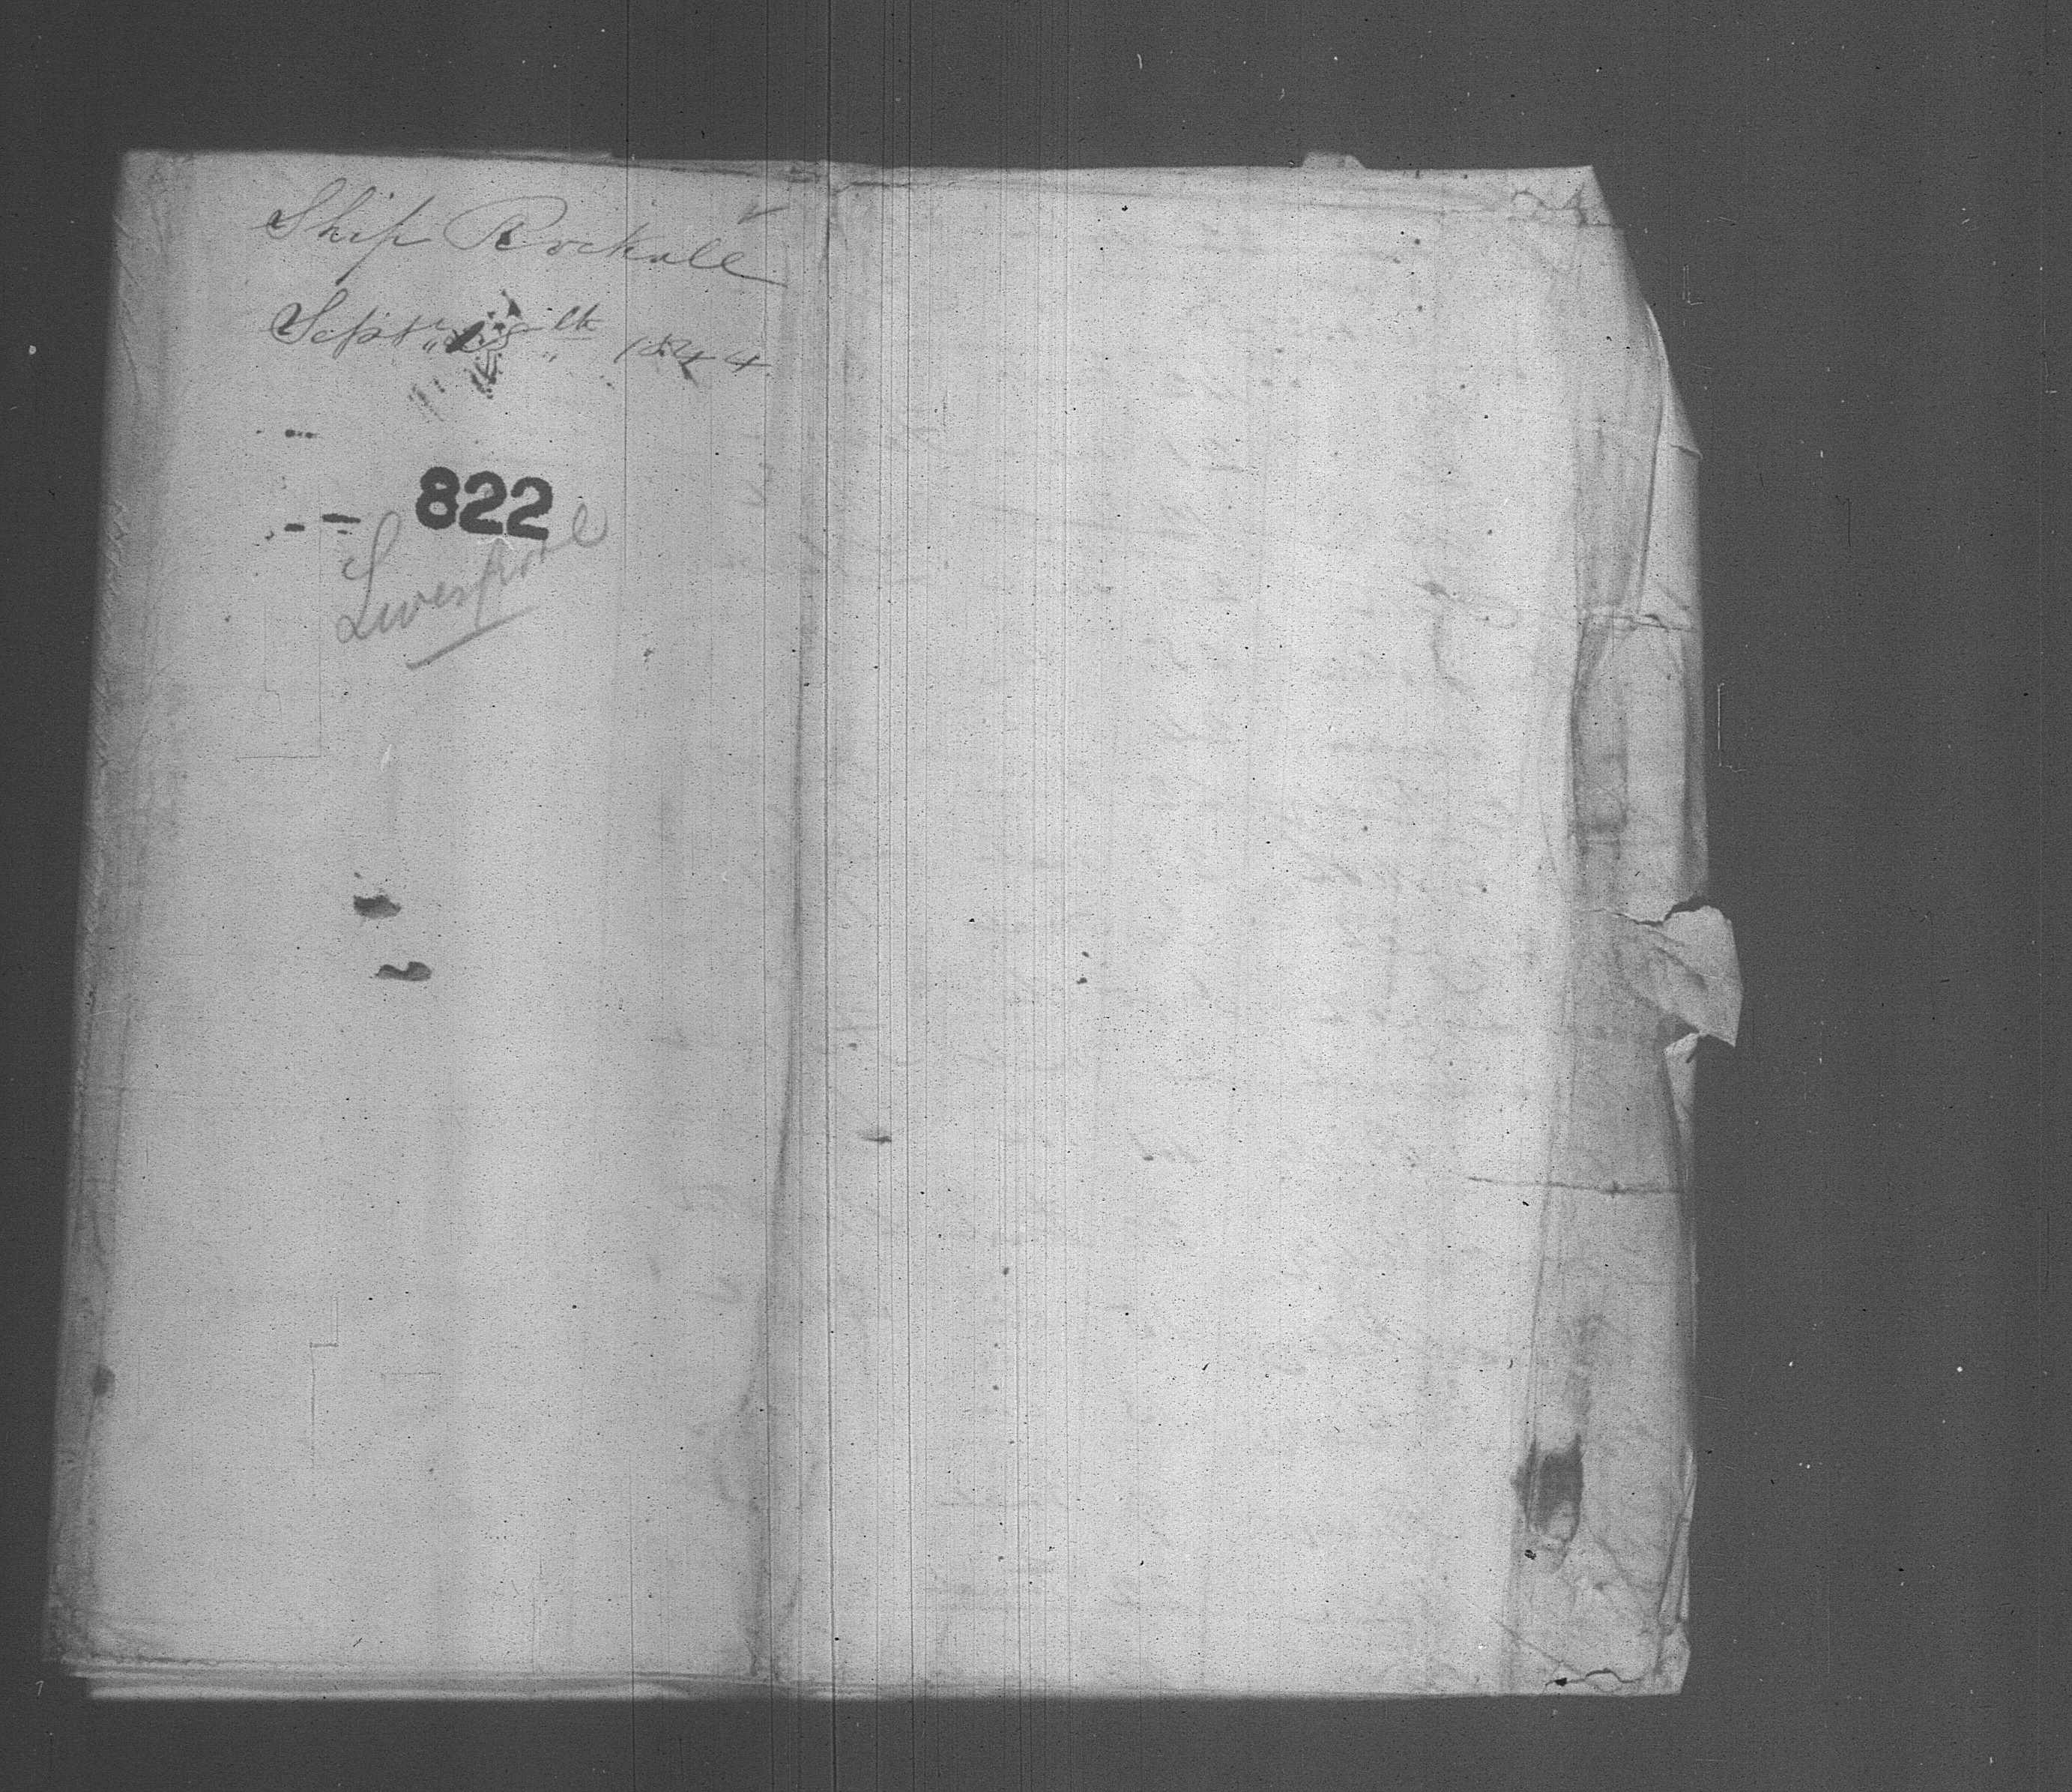 Ship Rockall
Sept 28th 1844
822
Liverpool